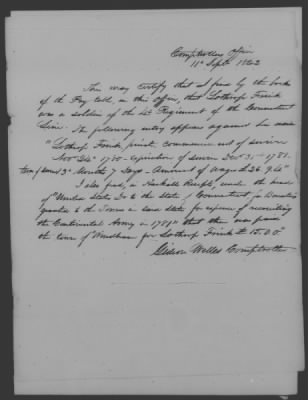 Comptrollers Office
11th Sept. 1842
This may certify that I find by the books
of the Pay table, in this office, that Lothrop
was a soldier of the 4th Regiment of the Connecticut
Line. The following entry appears against his name
"Lothrop private commence out of service
Nov 24th 1780 - expiration of service Dec 31 - 1781.
3 Months 7 Days - Amount of wages £26.9.4"
I also find, a Haskell Receipt, under the head
of "United States Dr to the State of Connecticut for Bounties
granted to the Towns in said State for expense of recruiting
the Continental Army in 1781" that there was paid
the town of Windham for Lothrop £15.0.0"
Gideon Welles Comptroller